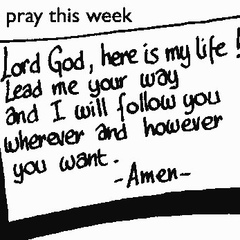 pray this week
Lord God, here is my life!
Lead me your way
and I will follow you
wherever and however
you want.
-Amen-